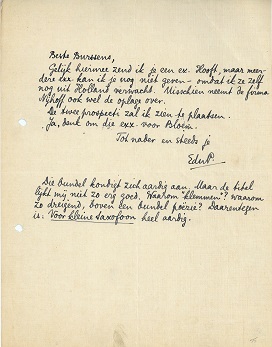 Beste Burssens,
Gelijk hiermee zend ik je een ex. Hooft, maar meer-
dere exx. kan ik je nog niet geven – omdat ik ze zelf
nog uit Holland verwacht. Misschien neemt de firma
Nijhoff ook wel de oplage over.
De twee prospecti zal ik zien te plaatsen.
Ja, denk om die exx. voor Bloem.
Tot nader en steeds je
EduP.
Die bundel kondigt zich aardig aan. Maar de titel
lijkt mij niet zo erg goed. Waarom "klemmen"? waarom
zo dreigend, boven een bundel poëzie? Daarentegen
is: Voor kleine saxofoon heel aardig.